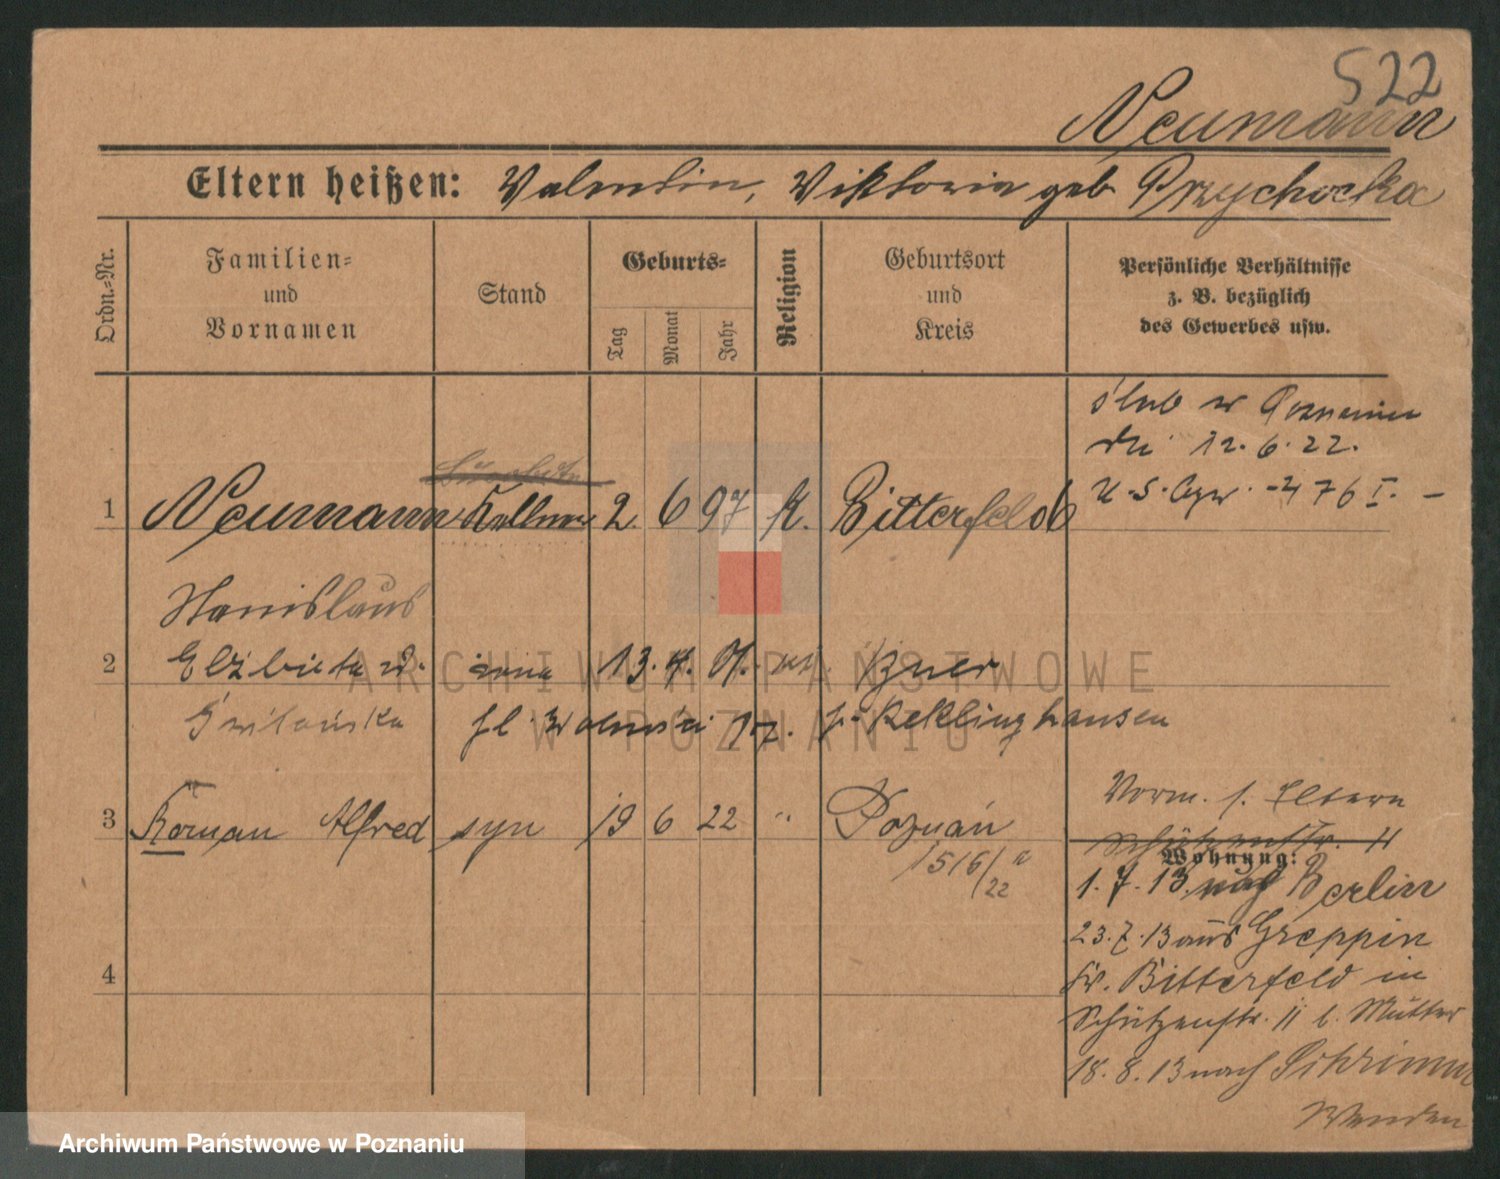 522
Neumann
Eltern heißen: Valentin, Viktoria geb Przychocka
Ordn.=Nr.
Familien=
und
Vornamen
Stand
Geburts=
Tag
Monat
Jahr
Religion
Geburtsort
und
Kreis
Persönliche Verhältnisse
z. B. bezüglich
des Gewerbes usw.
ślub w Poznaniu
dn. 12.6.22.
U.S.C. 476 I. –
1 Neumann Kellner 2. 6 97 k. Bitterfeld
Stanislaus
2 Elżbieta z. żona 13. 4. 01.
fl. Recklinghausen
3 Roman Alfred syn 19 6 22 " Poznań
15/6/22
Vorm. s. Eltern
Schützenstr. 11
Wohnung:
1. 7. 13. nach Berlin
23. 7. 13 aus Greppin
Kr. Bitterfeld in
Schützenstr. 11 b. Mutter
18. 8. 13 nach Schrimm
Wenden
4
ARCHIWUM PAŃSTWOWE
W POZNANIU
Archiwum Państwowe w Poznaniu